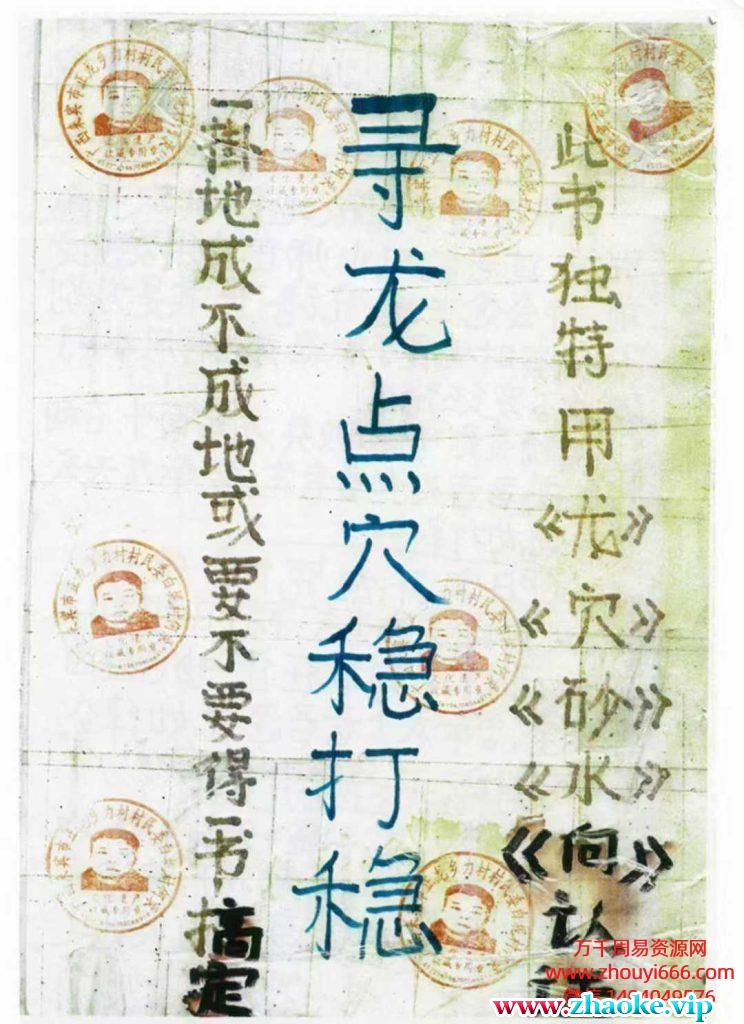 此书独特用《龙》《穴》《砂》《水》《向》认
寻龙点穴稳打稳
一高地成不成地或要不要得一书搞定
万千周易资源网
www.zhouyi666.com
www.zhaoke.vip